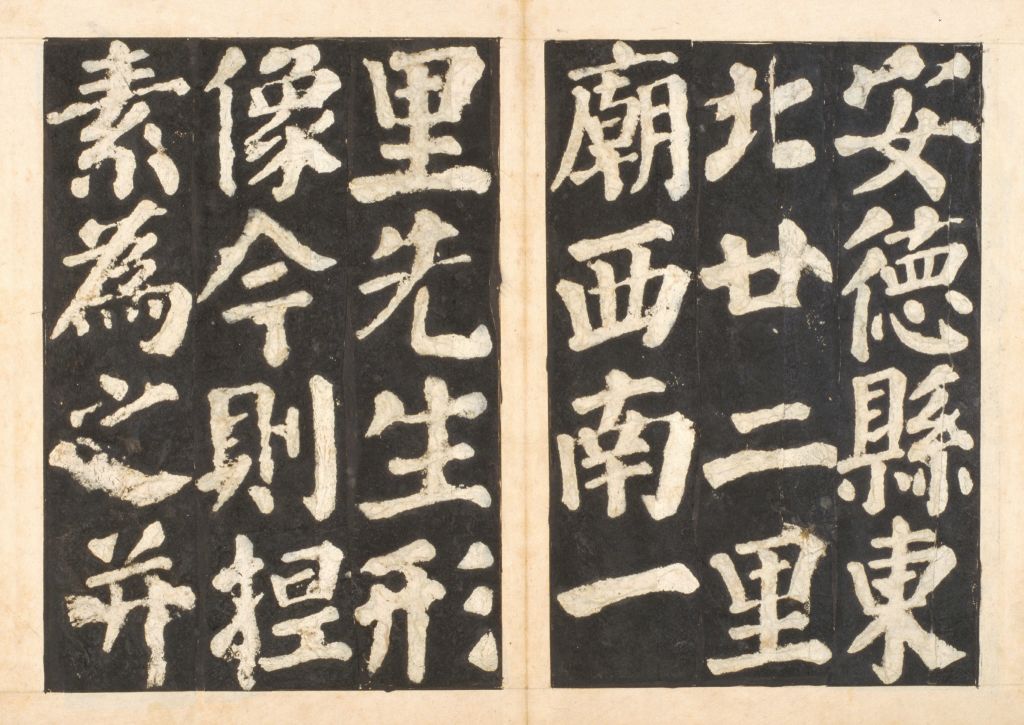 安德縣東
北廿二里
廟西南一
里先生形
像今則揑
素為之并